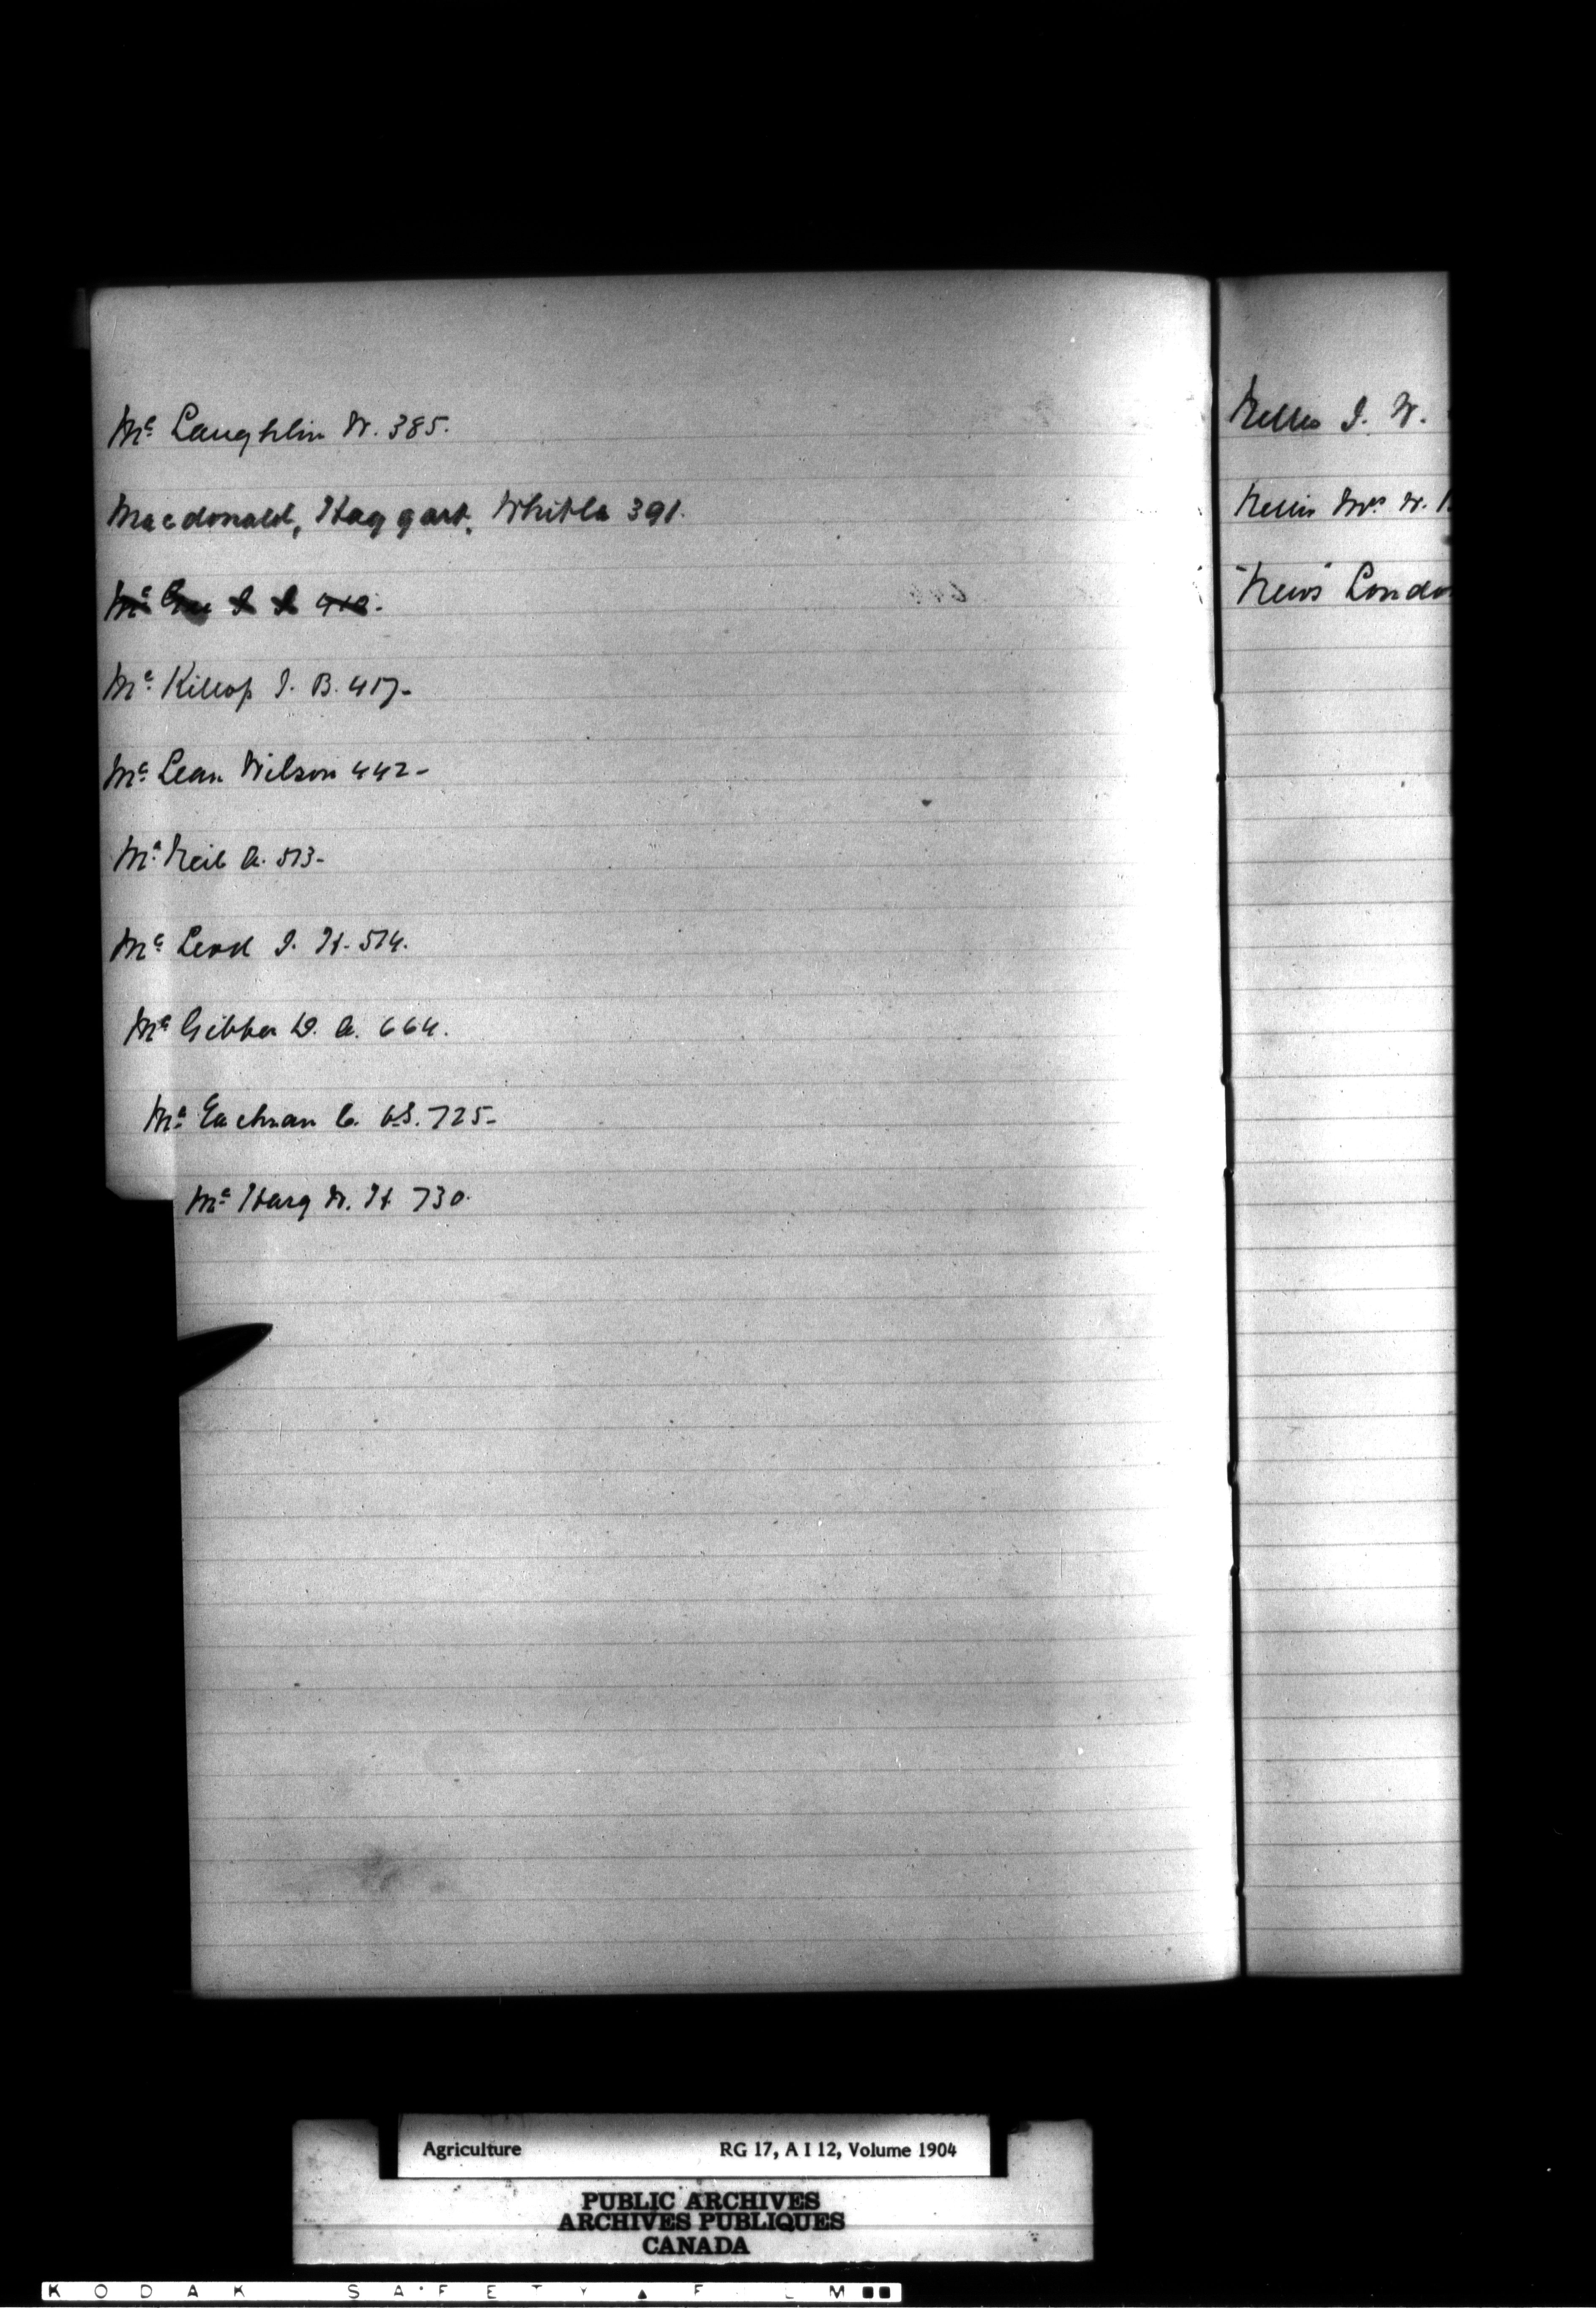 Mc Laughlin W. 385.
Macdonald, Haggart, Whitla 391.
Mc Gee J J 412.
Mc Killop J. B. 417-
Mc Lean Wilson 442-
Mc Neil A. 513-
Mc Leod J. H. 514.
Mc Gibbon D. A. 664.
Mc Eachran C. 725-
Mc Harg W. H 730.
Nelles J. W.
Nellis Mrs W.
"News" London
Agriculture RG 17, A I 12, Volume 1904
PUBLIC ARCHIVES
ARCHIVES PUBLIQUES
CANADA
KODAK SAFETY FILM